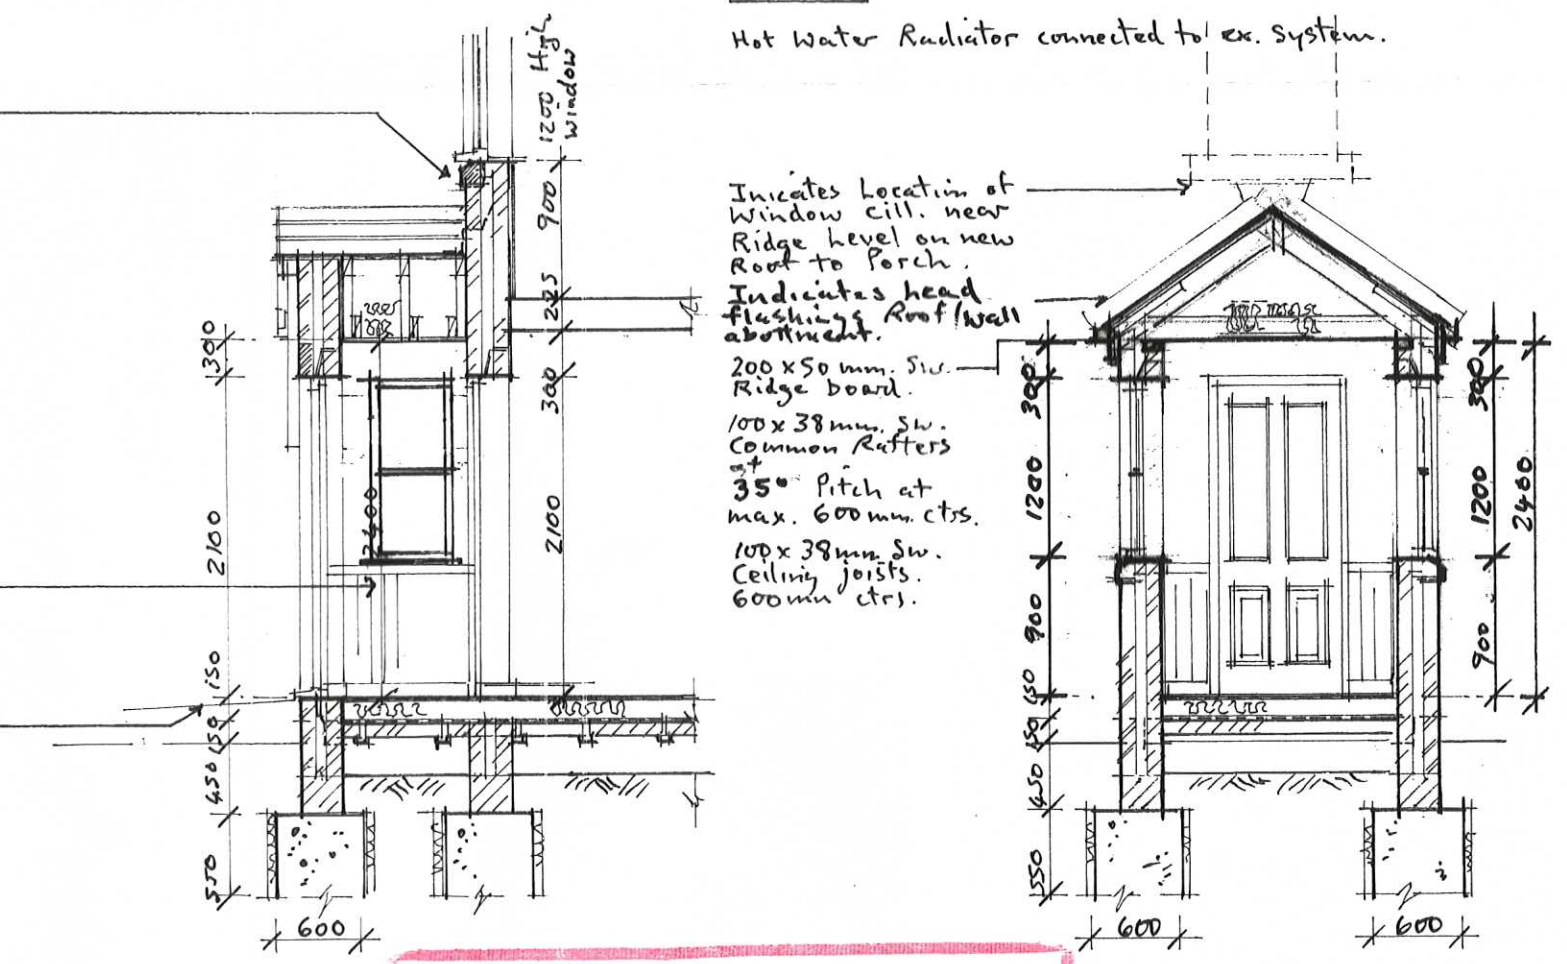 Hot Water Radiator connected to ex. System.
1200 High
Window
900
225
300
2100
300
2100
150
150
450
550
2400
600
Inicates Location of
Window Cill. near
Ridge Level on new
Roof to Porch.
Indicates head
flashings Roof/Wall
abuttment.
200 x 50 mm. Sw.
Ridge board.
100 x 38 mm. Sw.
Common Rafters
at
35° Pitch at
max. 600 mm. ctrs.
100 x 38 mm Sw.
Ceiling joists.
600 mm ctrs.
300
1200
900
150
150
450
550
300
1200
900
2400
600
600